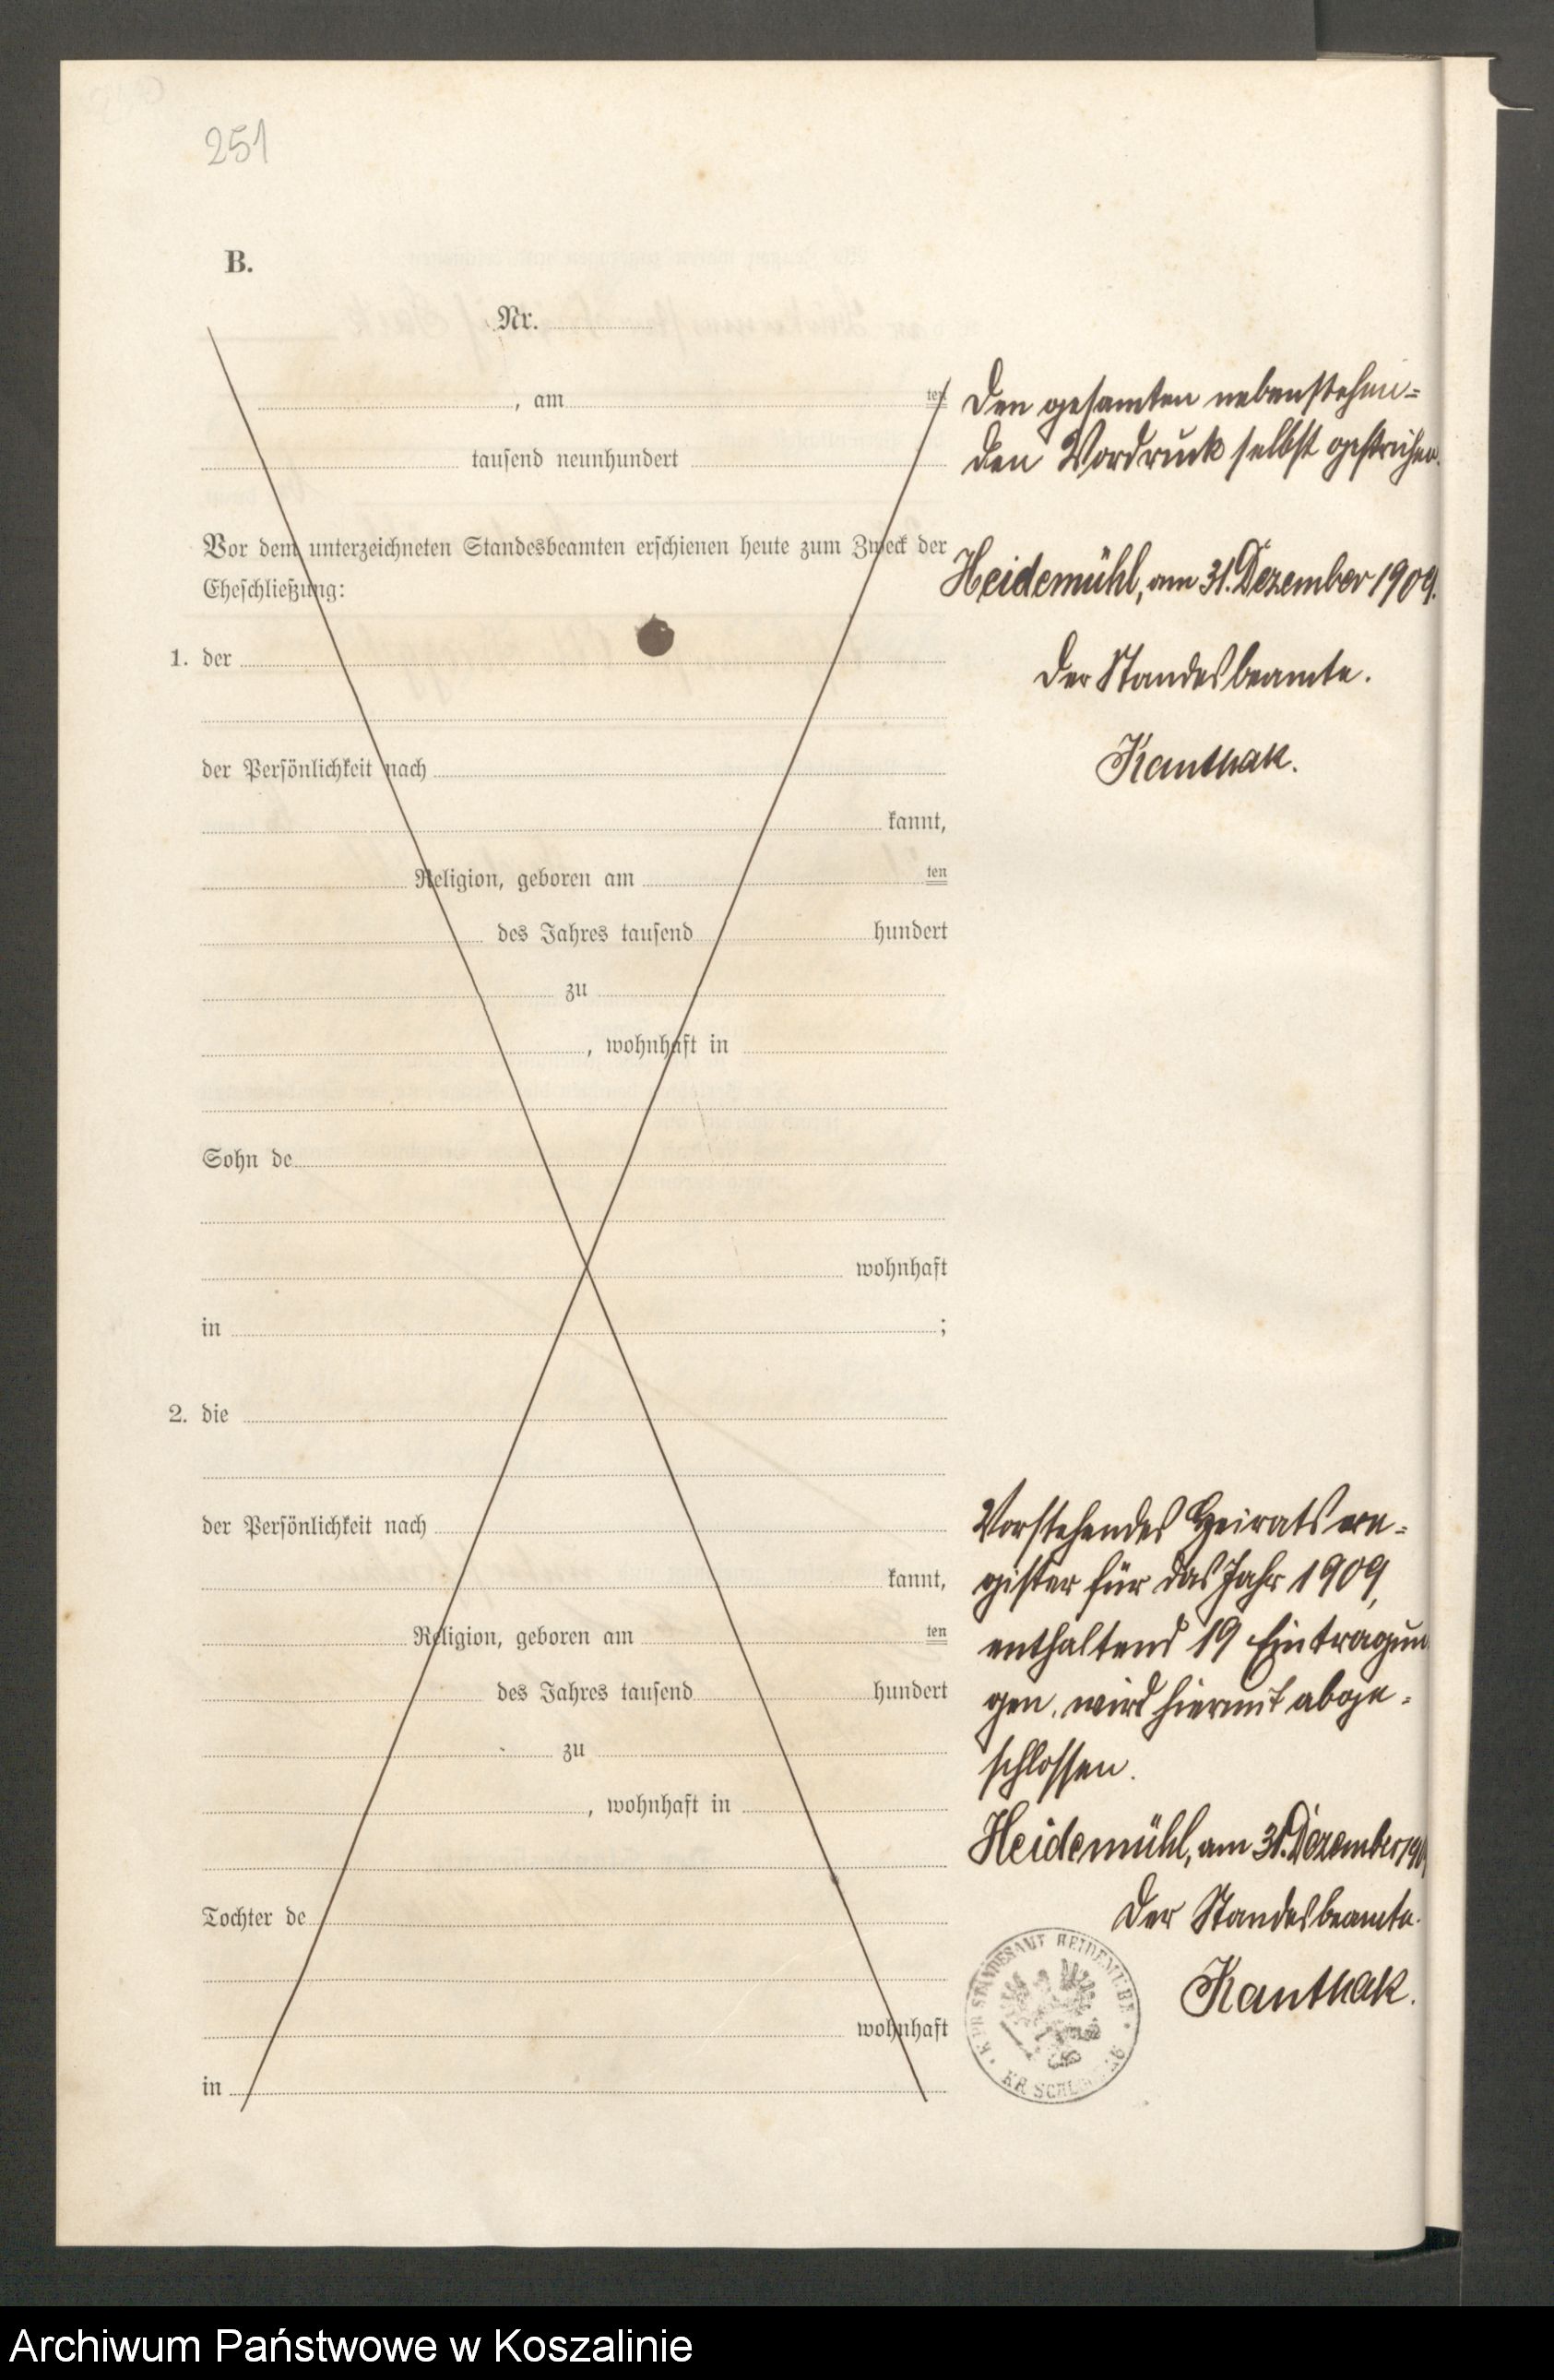 251
B.
Nr.
, am ten
tausend neunhundert
Vor dem unterzeichneten Standesbeamten erschienen heute zum Zweck der
Eheschließung:
1. der
der Persönlichkeit nach
kannt,
Religion, geboren am ten
des Jahres tausend hundert
zu
, wohnhaft in
Sohn de
wohnhaft
in ;
2. die
der Persönlichkeit nach
kannt,
Religion, geboren am ten
des Jahres tausend hundert
zu
, wohnhaft in
Tochter de
wohnhaft
in
Den gesamten nebenstehen=
den Vordruck selbst gestrichen.
Heidemühl, am 31. Dezember 1909.
Der Standesbeamte.
Kanthak.
Vorstehendes Heiratsre=
gister für das Jahr 1909,
enthaltend 19 Eintragun
gen, wird hiermit abge=
schlossen.
Heidemühl, am 31. Dezember 190
Der Standesbeamte.
Kanthak.
STANDESAMT
KR
Archiwum Państwowe w Koszalinie